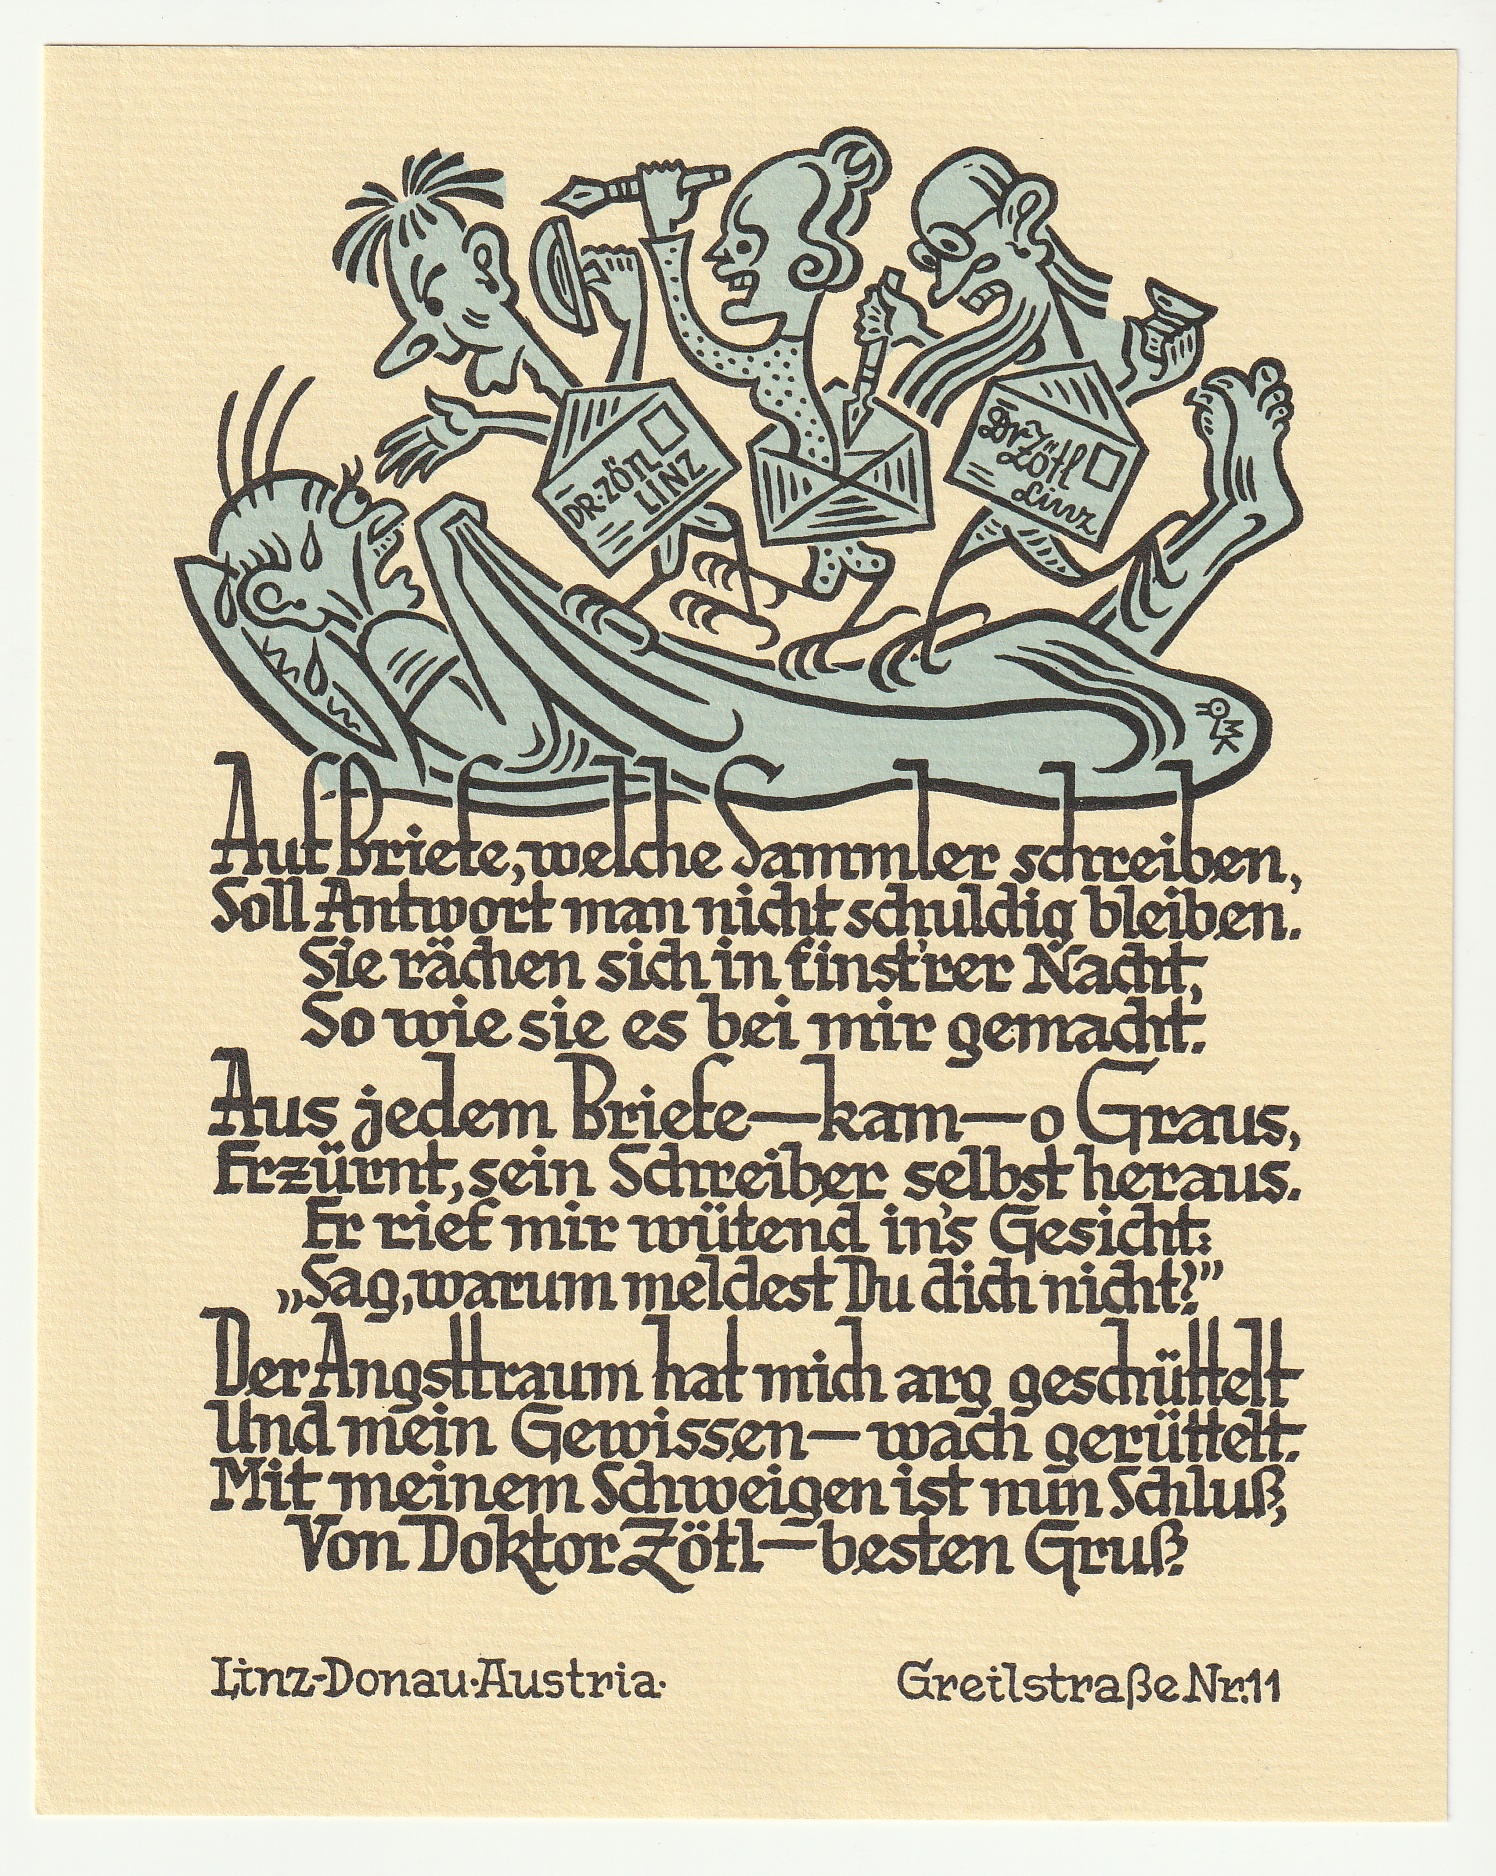 DR. ZÖTL
LINZ
Dr. Zötl
Linz
Auf Briefe, welche Sammler schreiben,
Soll Antwort man nicht schuldig bleiben.
Sie rächen sich in finst'rer Nacht,
So wie sie es bei mir gemacht.
Aus jedem Briefe—kam—o Graus,
Erzürnt, sein Schreiber selbst heraus.
Er rief mir wütend in's Gesicht:
„Sag, warum meldest Du dich nicht?”
Der Angsttraum hat mich arg geschüttelt
Und mein Gewissen—wach gerüttelt.
Mit meinem Schweigen ist nun Schluß,
Von Doktor Zötl—besten Gruß.
Linz-Donau·Austria·
Greilstraße Nr.11